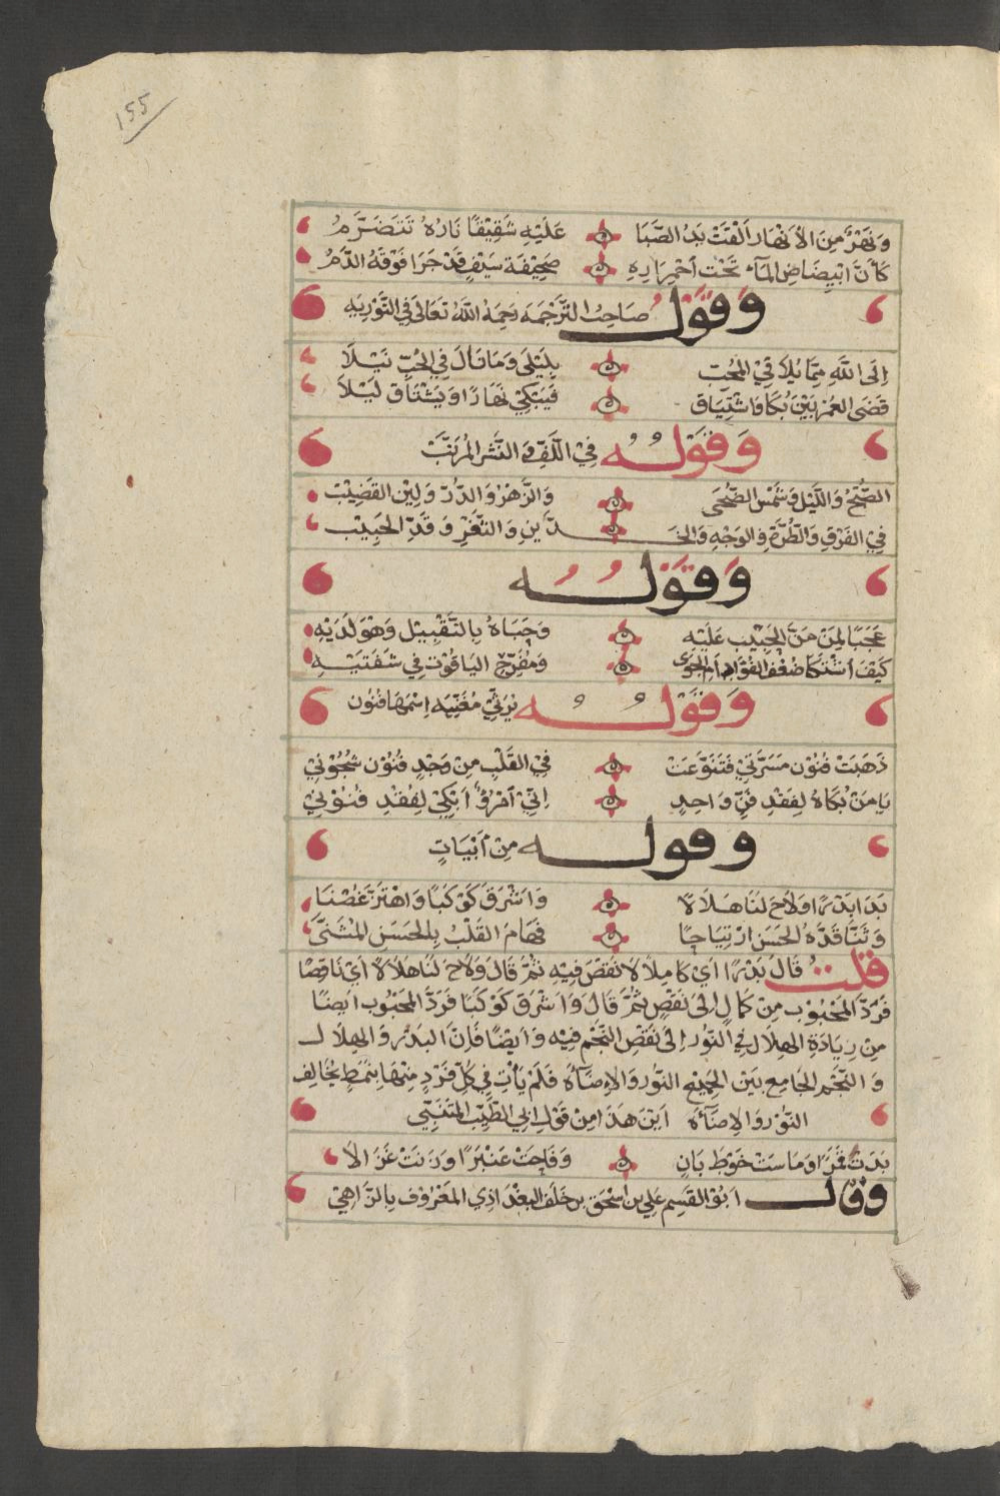 155
وَنَهْرٌ مِنَ الاَنْهَارِ اَلْقَتْ يَدُ الصَّبَا عَلَيْهِ شَقِيْقًا نَارُهُ تَتَضَرَّمُ
كَأَنَّ ابْيِضَاضِ المَآءِ تَحْتَ احْمِرَارِهِ صَحِيْفَة سَيْفٍ قَدْ جَرَا فَوْقَهُ الدَّمُ
وَقَوْلُ صَاحِبُ التَّرْجَمَه رَحِمَهُ اللّٰهُ تَعَالَى فِي التَّوْرِيَهِ
اِلَى اللّٰهِ مِمَّا يُلَاقِيْ المُحِبّ بِلَيْلَى وَمَا نَالَ فِي الحُبِّ نَيْلَا
قَضَى العُمْرَ بَيْنَ بُكَا وَاشْتِيَاق فَيَبْكِيْ نَهَارًا وَيَشْتَاق لَيْلَا
وَقَوْلُهُ فِيْ اللَّفِّ وَ النَّشْرِ المُرَتَّبْ
الصُّبْحُ وَاللَّيْل وَشَمْسِ الضُّحَى وَالزَّهْرُ وَالدُّرّ وَلِيْن القَضِيْبْ
فِيْ الفَرْقِ وَالطُّرَّةِ وَالوَجْهِ وَالخَدَّيْنِ وَالثَّغْرِ وَقَدِّ الحَبِيْب
وَقَوْلُهُ
عَجَبًا لِمَنْ مَنَّ الحَبِيْبِ عَلَيْه وَحَبَاهُ بِالتَّقْبِيْل وَهْوَ لَدَيْهِ
كَيْفَ اشْتَكَا ضُعْفَ الفُؤَادِ اَمِ الجَوَى وَمُفَرِّحْ اليَاقُوْت فِي شَفَتَيْهِ
وَقَوْلُهُ يَرْثِي مُغَنِّيَه اِسْمُهَا فُنُون
ذَهَبَتْ فُنُوْن مَسَرَّتِيْ فَتَنَوَّعَتْ فِيْ القَلْبِ مِنْ وَجْدٍ فُنُوْن شُجُوْنِيْ
يَا مَنْ بُكَاهُ لِفَقْدِ فَنٍّ وَاحِدٍ اِنِّيْ امْرُؤٌ اَبْكِيْ لِفَقْدِ فُنُوْنِيْ
وقوله مِنْ اَبْيَاتٍ
بَدَا بَدْرًا وَلَاحَ لَنَا هِلَالًا وَاَشْرَقَ كَوْكَبًا وَاهْتَزَّ غُصْنَا
وَثَنَّا قَدَّهُ الحَسَنِ ارْتِيَاحًا فَهَامَ القَلْبُ بِالحَسَنِ المُثَنَّى
قلت قَالَ بَدْرًا اَيْ كَامِلًا لَا نَقْصَ فِيْهِ ثُمَّ قَالَ وَلَاحَ لَنَا هِلَالًا اَيْ نَاقِصًا
فَرَدَّ المَحْبُوْب مِنْ كَمَالٍ اِلَى نَقْصٍ ثُمَّ قَالَ وَاَشْرَقَ كَوْكَبًا فَرَدَّ المَحْبُوْب اَيْضًا
مِنْ زِيَادَةِ الهِلَال فِي النُّوْرِ اِلَى نَقْصِ النَّجْمِ فِيْهِ وَاَيْضًا فَاِنَّ البَدْر وَالهِلَال
وَالنَّجْم الجَامِع بَيْنَ الجَمِيْعِ النُّوْر وَالاِضَآءَه فَلَمْ يَأْتِ فِي كُلِّ فَرْدٍ مِنْهَا بِنَمَطٍ يُخَالِف
النُّوْر وَالاِضَآءَه اَيْنَ هَذَا مِنْ قَوْلِ ابِي الطَّيِّبِ المُتَنَبِّي
بَدَتْ قَمَرًا وَمَاسَتْ خَوْطَ بَانٍ وَفَاحَتْ عَنْبَرًا وَرَنَتْ غَزَالَا
وقال اَبُوْ القَسِم عَلِي بن اسْحَق بن خَلَف البَغْدَاذِي المَعْرُوْف بِالزَّاهِيْ